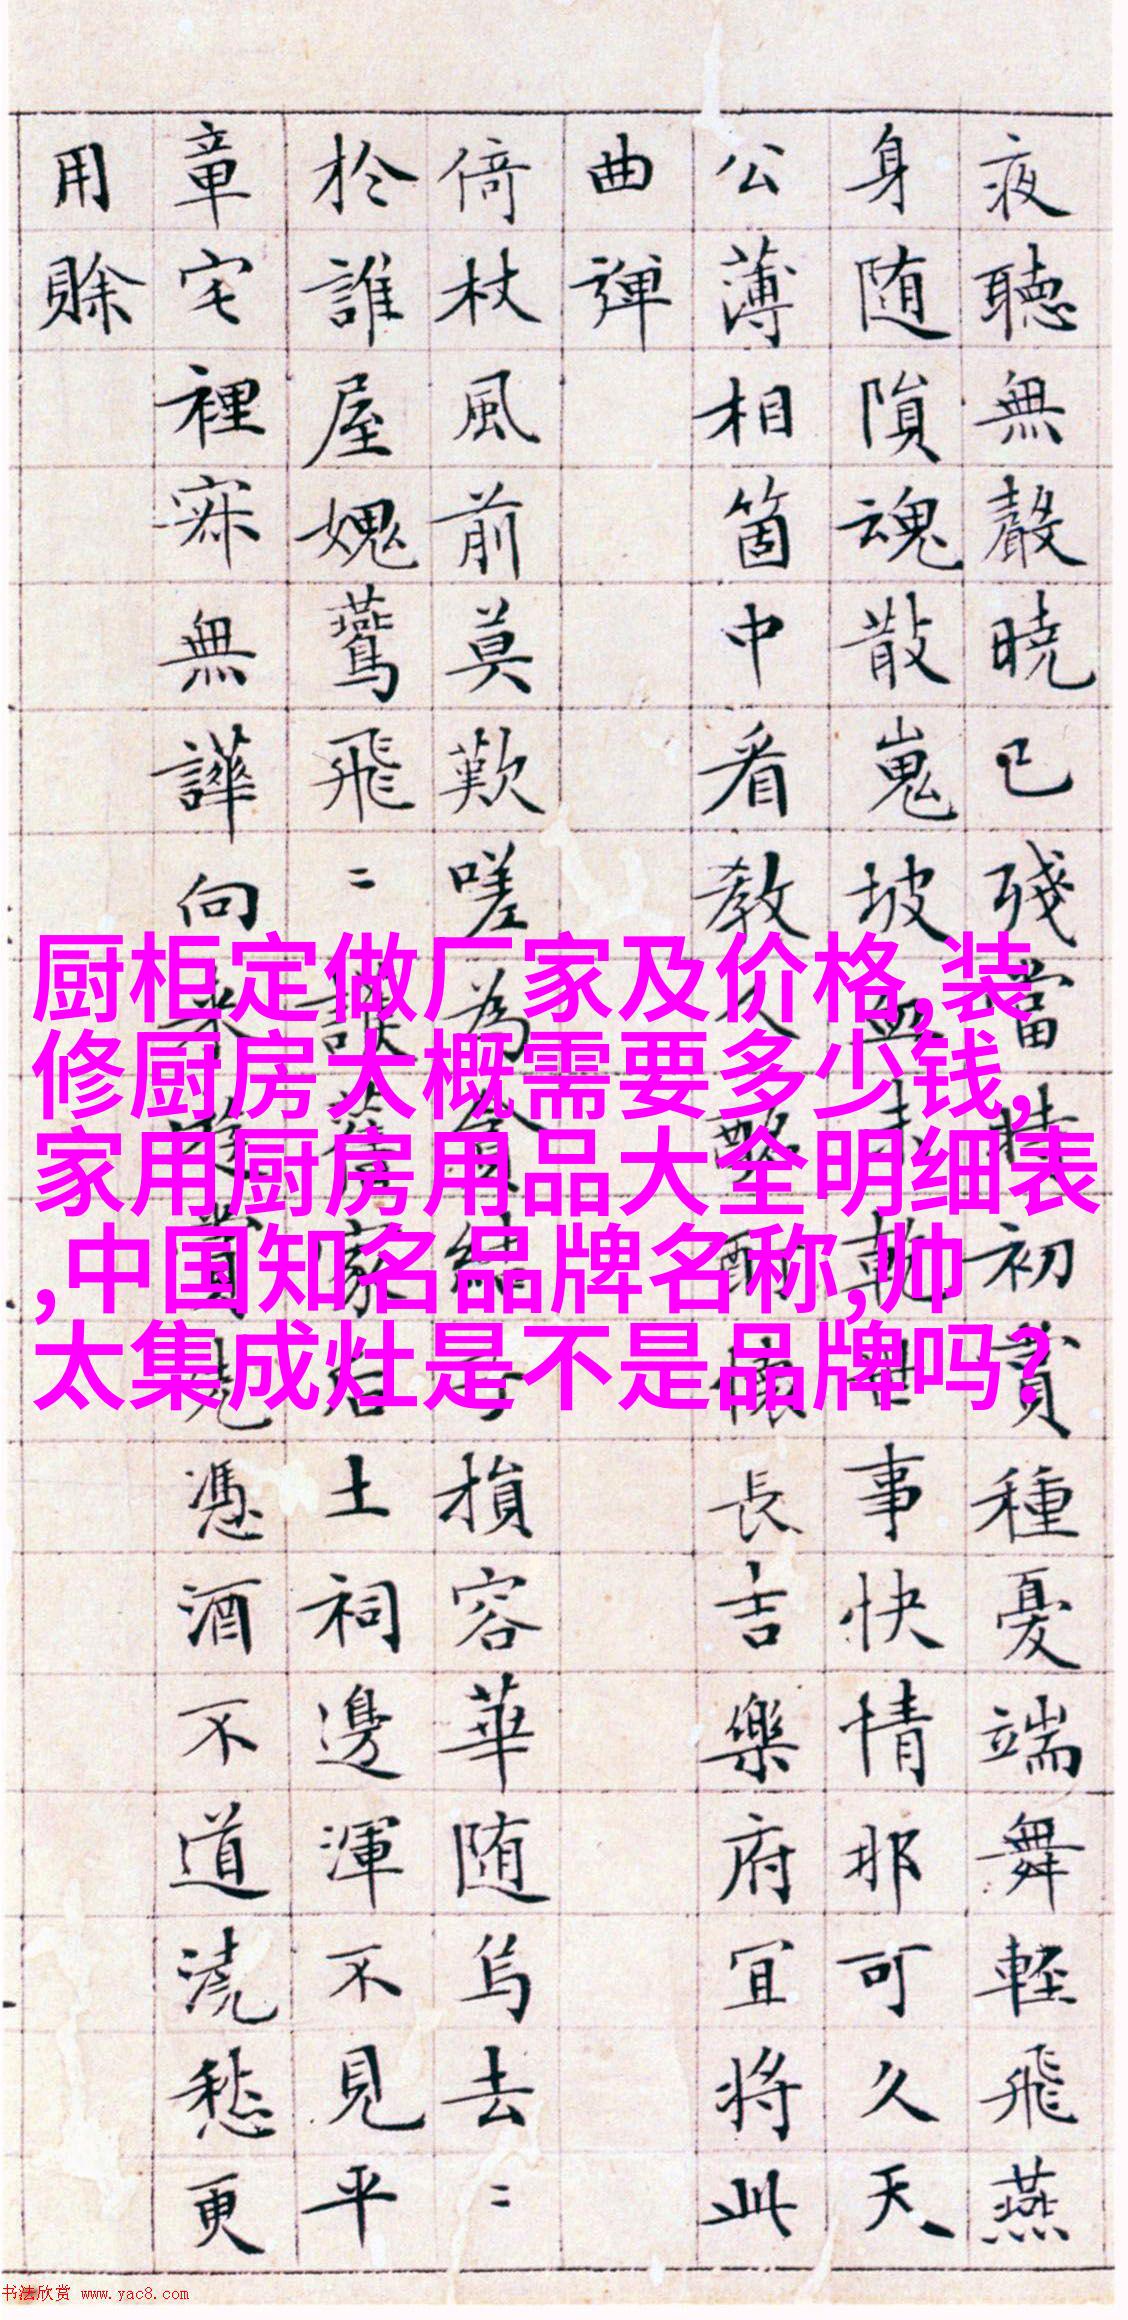 夜聽無聲曉已殘當初賞種憂端舞輕飛燕
身随隕魂散嵬坡血未乾世事快情那可久天
公薄相箇中看教人酸懷長吉樂府宜將此
曲彈
倚杖風前莫歎嗟為結子損容華随烏去〻
於誰屋媿鷰飛〻誤舊家后土祠邊渾不見平
章宅裡寂無譁向来遊賞憑酒不道澆愁更
用賒
厨柜定做厂家及价格,装
修厨房大概需要多少钱,
家用厨房用品大全明细表
,中国知名品牌名称,帅
太集成灶是不是品牌吗?
书法欣赏 www.yac8.com